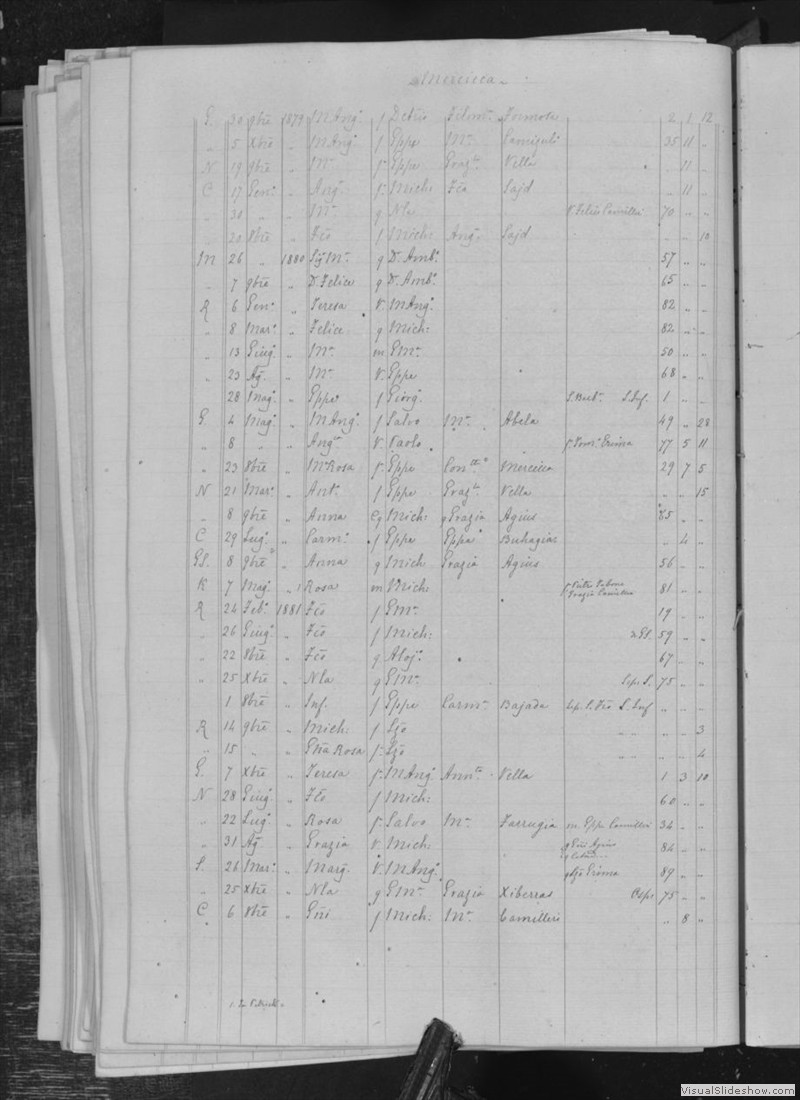 Mercieca
G. 30 9bre 1879 M Angª f Petrus Filomª Formosa 2 1 12
" 5 Xbre " M Angº f Eppe Mª Camizuli 35 11 "
N 19 9bre " Mª f Eppe Grazla Vella " 11 "
C 17 Genº " Angª f Mich: Fco Sajd " 11 "
" 30 " " Mª q Nla V. Felice Camilleri 70 " "
" 20 8bre " Fco f Mich: Angª Sajd " " 10
M 26 " 1880 Sig Mª q D. Ambº 57 " "
" 7 9bre " D. Felice q D. Ambº 65 " "
R 6 Genº " Teresa V. M Angº 82 " "
" 8 Marº " Felice q Mich: 82 " "
" 13 Giugº " Mª m Gmª 50 " "
" 23 Agº " Mª V. Eppe 68 " "
28 Magº " Eppeª f Giorgº S. Bert. S. Inf. 1 " "
G. 4 Magº " M Angº f Salvo Mª Abela 49 " 28
" 8 " " Angla V. Paolo 77 5 11
" 23 8bre " Mª Rosa f Eppe Conctta Mercieca 29 7 5
N 21 Marº " Antº f Eppe Grazla Vella " " 15
" 8 9bre " Anna q Mich: q Grazia Agius 85 " "
C 29 Lugº " Carmª f Eppe Eppaª Buhagiar " 4 "
GS. 8 9bre " Anna q Mich Grazia Agius 56 " "
K 7 Magº " Rosa m Mich: 81 " "
R 24 Febº 1881 Fco f Gmª 19 " "
" 26 Giugº " Fco f Mich: GS. 59 " "
" 22 8bre " Fco q Alojº 67 " "
" 25 Xbre " Nla q Gmª Sep. S. 75 " "
1 8bre " Inf. f Eppe Carmª Bajada Sep. S. Fco S. Inf " " "
R 14 9bre " Mich: f Lzo " " " " 3
" 15 " " Gna Rosa f Lzo " " " " 4
G. 7 Xbre " Teresa f M Angº Anntta Vella 1 3 10
N 28 Giugº " Fco f Mich: 60 " "
" 22 Lugº " Rosa f Salvo Mª Farrugia m Eppe Camilleri 34 " "
" 31 Agº " Grazia V. Mich: q Gni Agius 84 " "
S. 26 Marº " Margª V. M Angº q Lzo Grima 89 " "
" 25 Xbre " Nla q Gmª Grazia Xiberras Osp. 75 " "
C 6 8bre " Gni f Mich: Mª Camilleri " 8 "